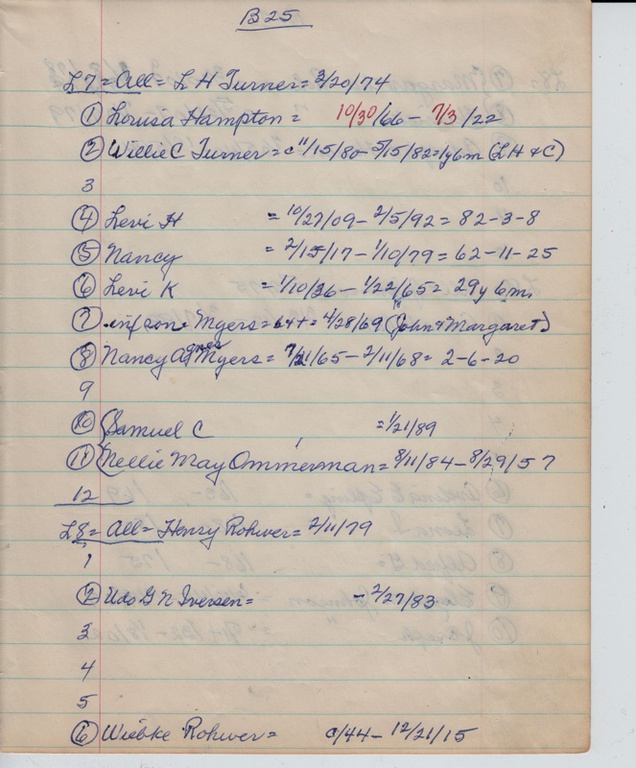 B25
L7 = All = L H Turner = 3/20/74
① Lorusa Hampton = 10/30/66 - 7/3/22
② Willie C Turner = c 11/15/80 - 5/15/82 = 1y6m (L H & C)
3
④ Levi H = 10/27/09 - 2/5/92 = 82-3-8
⑤ Nancy = 2/15/17 - 1/10/79 = 62-11-25
⑥ Levi K = 1/10/36 - 1/22/65 = 29y 6m
⑦ inf son Myers = = 4/28/69 (John & Margaret)
⑧ Nancy Agnes Myers = /65 - 2/11/68 = 2-6-20
9
⑩ Samuel C = 1/21/89
⑪ Nellie May Ommerman = 8/11/84 - 8/29/57
12
L8 = All = Henry Rohwer = 2/11/79
1
② Udo G N Iversen = - 2/27/83
3
4
5
⑥ Wiebke Rohwer = c/44 - 12/21/15